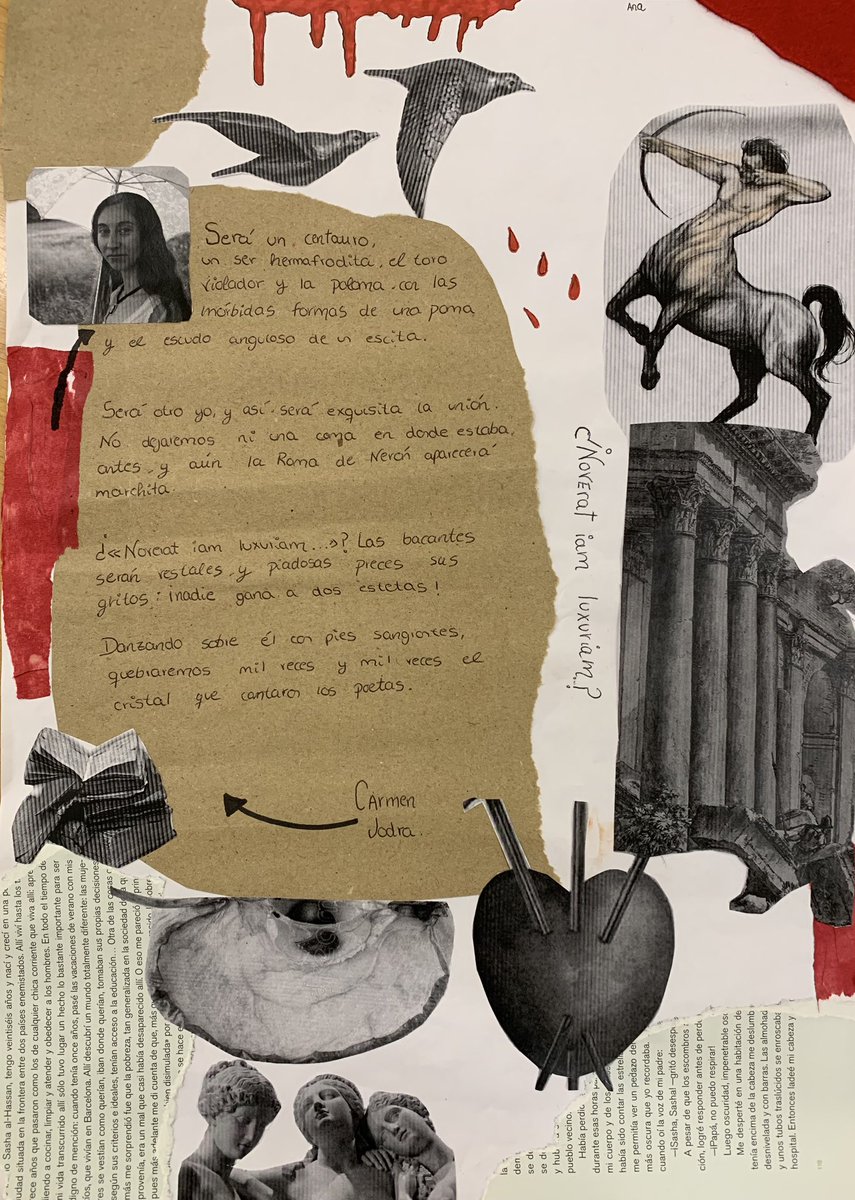 Ana
Será un centauro,
un ser hermafrodita, el toro
violador y la paloma con las
mórbidas formas de una poma
y el escudo anguloso de un escita.
Será otro yo, y así será exquisita la unión.
No dejaremos ni una coma en donde estaba,
antes, y aún la Roma de Nerón aparecerá
marchita.
¿«Noverat iam luxuriam...»? Las bacantes
serán vestales, y piadosas preces sus
gritos: ¡nadie gana a dos estetas!
Danzando sobre él con pies sangrantes,
quebraremos mil veces y mil veces el
cristal que cantaron los poetas.
Carmen
Jodra.
¿Noverat iam luxuriam...?
Sasha al-Hassan, tengo veintiséis años y nací y crecí en una
ciudad situada en la frontera entre dos países enemistados. Allí viví hasta los
trece años que pasaron como los de cualquier chica corriente que viva allí:
cocinar, limpiar y atender y obedecer a los hombres. En todo el tiempo de
mi vida transcurrido allí sólo tuvo lugar un hecho lo bastante importante para ser
digno de mención: cuando tenía once años, pasé las vacaciones de verano con mis
que vivían en Barcelona. Allí descubrí un mundo totalmente diferente: las
se vestían como querían, iban donde querían, tomaban sus propias decisiones
según sus criterios e ideales, tenían acceso a la educación... Otra de las cosas
más me sorprendió fue que la pobreza, tan generalizada en la sociedad de la
provenía, era un mal que casi había desaparecido allí. O eso me pareció
pues más adelante me di cuenta de que, más
disimulada» por
se hace
la
den
se
se
y
pueblo vecino.
Había
durante esas horas
mi cuerpo y de los
había sido contar las
me permitía ver un pedazo
más oscura que yo recordaba.
cuando oí la voz de mi padre:
—¡Sasha, Sasha! —gritó
A pesar de que los escombros
ción, logré responder antes de
—¡Papá, no puedo respirar!
Luego oscuridad, impenetrable
Me desperté en una habitación de
tenía encima de la cabeza me
desnivelada y con barras. Las
y unos tubos traslúcidos se
hospital. Entonces ladeé mi cabeza y